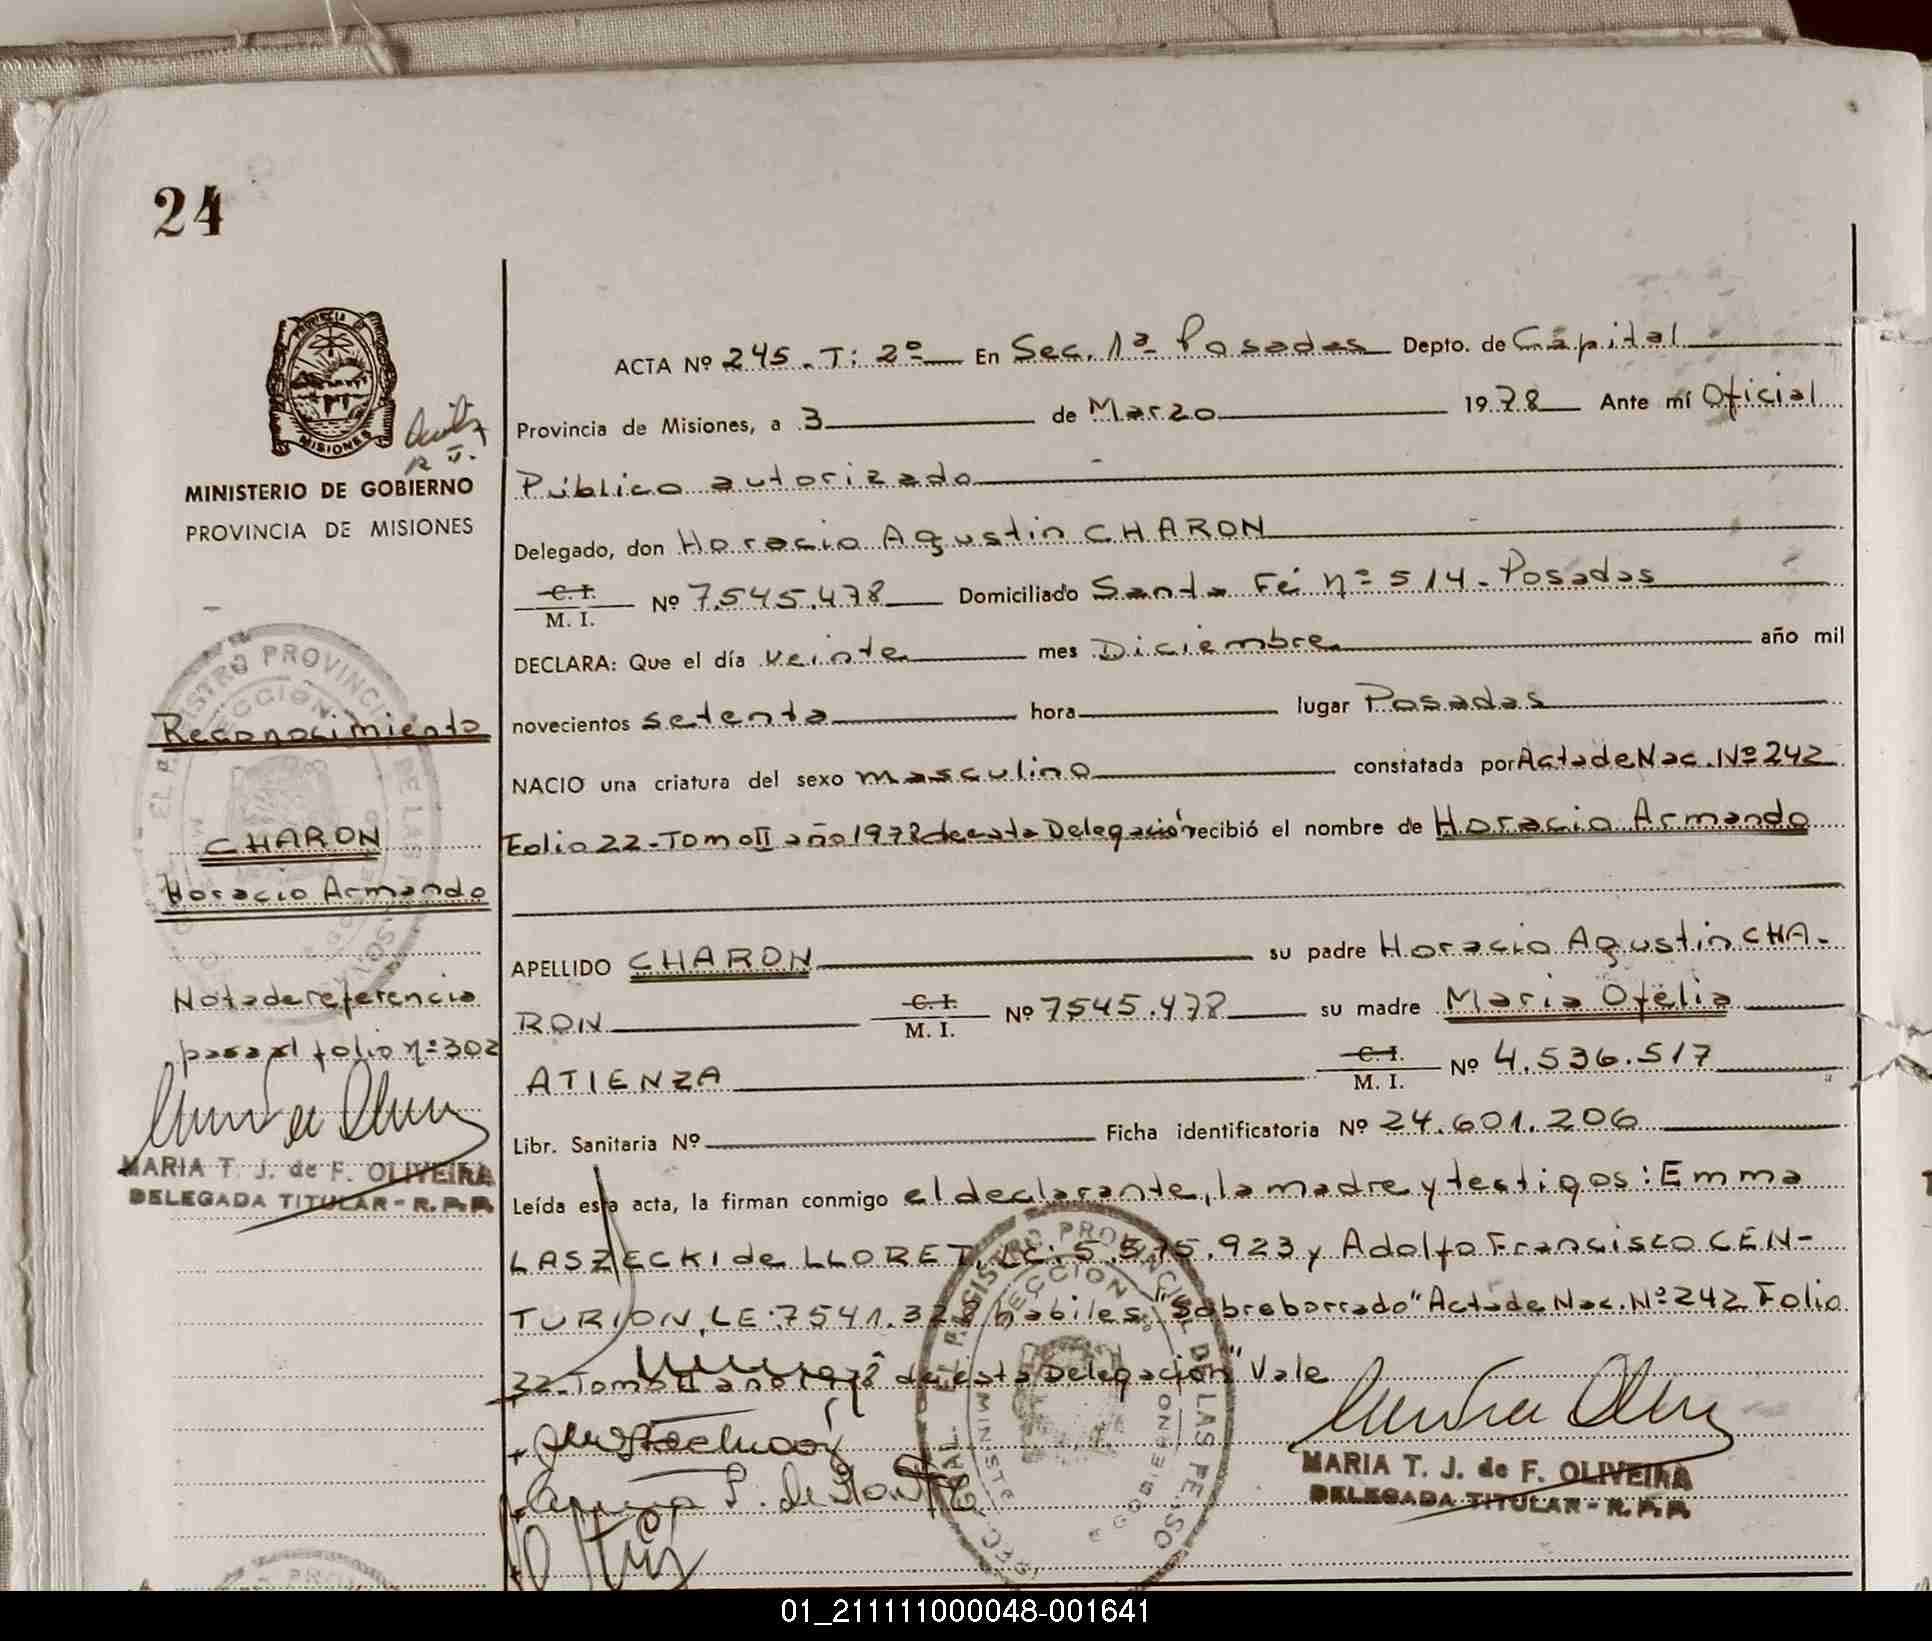 24
PROVINCIA DE
MISIONES
MINISTERIO DE GOBIERNO
PROVINCIA DE MISIONES
Reconocimiento
CHARON
Horacio Armando
Nota de referencia
pasa al folio nº 302
MARIA T. J. de F. OLIVEIRA
DELEGADA TITULAR - R. P. P.
ACTA Nº 245. T: 2º En Sec. 1ª Posadas Depto. de Capital
Provincia de Misiones, a 3 de Marzo 1978 Ante mí Oficial
Público autorizado
Delegado, don Horacio Agustin CHARON
C. I.
M. I. Nº 7.545.478 Domiciliado Santa Fé nº 514 - Posadas
DECLARA: Que el día veinte mes Diciembre año mil
novecientos setenta hora lugar Posadas
NACIO una criatura del sexo masculino constatada por Acta de Nac. Nº 242
Folio 22 - Tomo II año 1978 de esta Delegación recibió el nombre de Horacio Armando
APELLIDO CHARON su padre Horacio Agustin CHA-
RON C. I. M. I. Nº 7545.478 su madre Maria Ofelia
ATIENZA C. I. M. I. Nº 4.536.517
Libr. Sanitaria Nº Ficha identificatoria Nº 24.601.206
Leída esta acta, la firman conmigo el declarante, la madre y testigos: Emma
LASZECKI de LLORET, LC: 5.575.923 y Adolfo Francisco CEN-
TURION, LE: 7541.328 habiles. "Sobreborrado" Acta de Nac. Nº 242 Folio
22 - Tomo II año 1978 de esta Delegación" Vale
MARIA T. J. de F. OLIVEIRA
DELEGADA TITULAR - R. P. P.
01_211111000048-001641